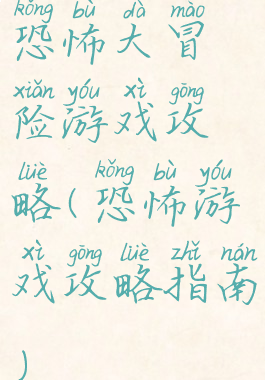 kǒng bù dà mào
恐怖大冒
xiǎn yóu xì gōng
险游戏攻
lüè kǒng bù yóu
略(恐怖游
xì gōng lüè zhǐ nán
戏攻略指南
)